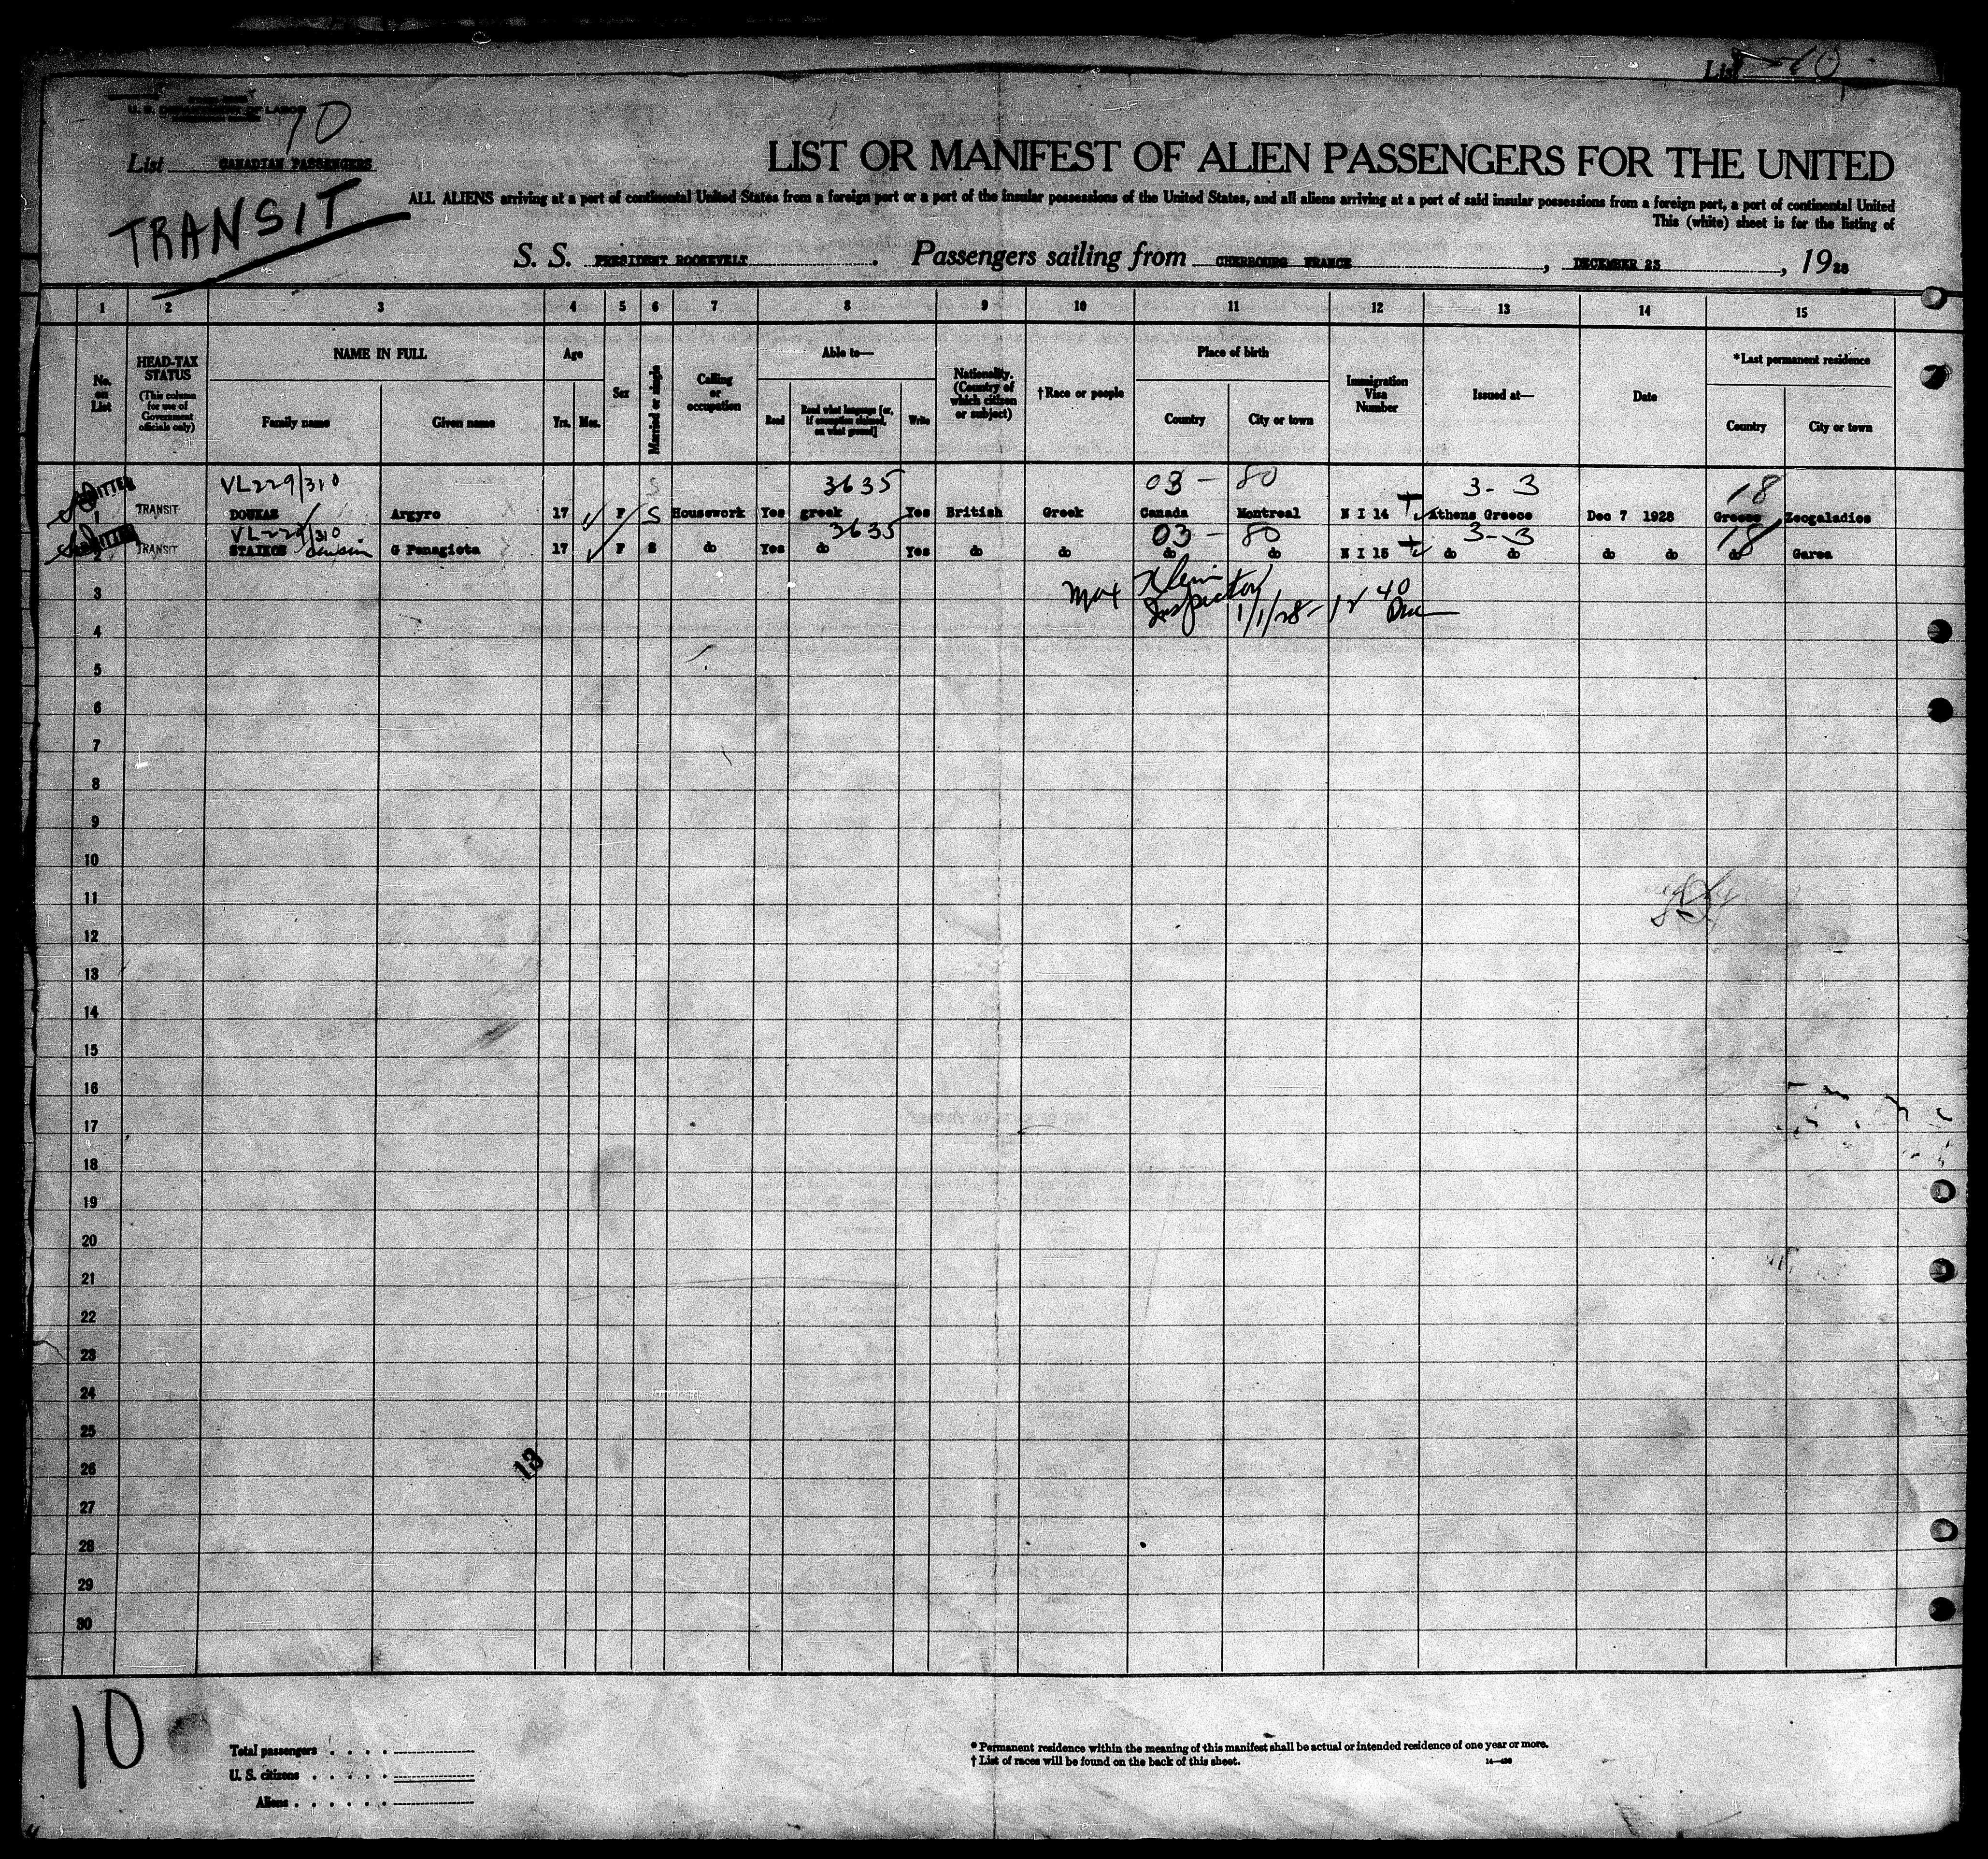 List 10
U. S. DEPARTMENT OF LABOR
10
List CANADIAN PASSENGERS
LIST OR MANIFEST OF ALIEN PASSENGERS FOR THE UNITED
TRANSIT
ALL ALIENS arriving at a port of continental United States from a foreign port or a port of the insular possessions of the United States, and all aliens arriving at a port of said insular possessions from a foreign port, a port of continental United
This (white) sheet is for the listing of
S. S. PRESIDENT ROOSEVELT. Passengers sailing from CHERBOURG FRANCE, DECEMBER 23, 1928
1 2 3 4 5 6 7 8 9 10 11 12 13 14 15
No. on List
HEAD-TAX STATUS (This column for use of Government officials only)
NAME IN FULL
Family name
Given name
Age
Yrs. Mos.
Sex
Married or single
Calling or occupation
Able to—
Read
Read what language [or, if exemption claimed, on what ground]
Write
Nationality. (Country of which citizen or subject)
†Race or people
Place of birth
Country
City or town
Immigration Visa Number
Issued at—
Date
*Last permanent residence
Country
City or town
VL229/310 S 3635 03 - 80 3-3 18
1 TRANSIT DOUKAS Argyro 17 F S Housework Yes greek Yes British Greek Canada Montreal N I 14 Athens Greece Dec 7 1928 Greece Zeogaladies
VL229/310 3635 03 - 80 3-3 18
2 TRANSIT STAIKOS cousin G Panagiota 17 F S do Yes do Yes do do do do N I 15 do do do do do Garea
Max Klein
Inspector 1/1/28 - 12 40
3
4
5
6
7
8
9
10
11
12
13
14
15
16
17
18
19
20
21
22
23
24
25
26
27
28
29
30
13
10
Total passengers . . . .
U. S. citizens . . . . .
Aliens . . . . . .
* Permanent residence within the meaning of this manifest shall be actual or intended residence of one year or more.
† List of races will be found on the back of this sheet.